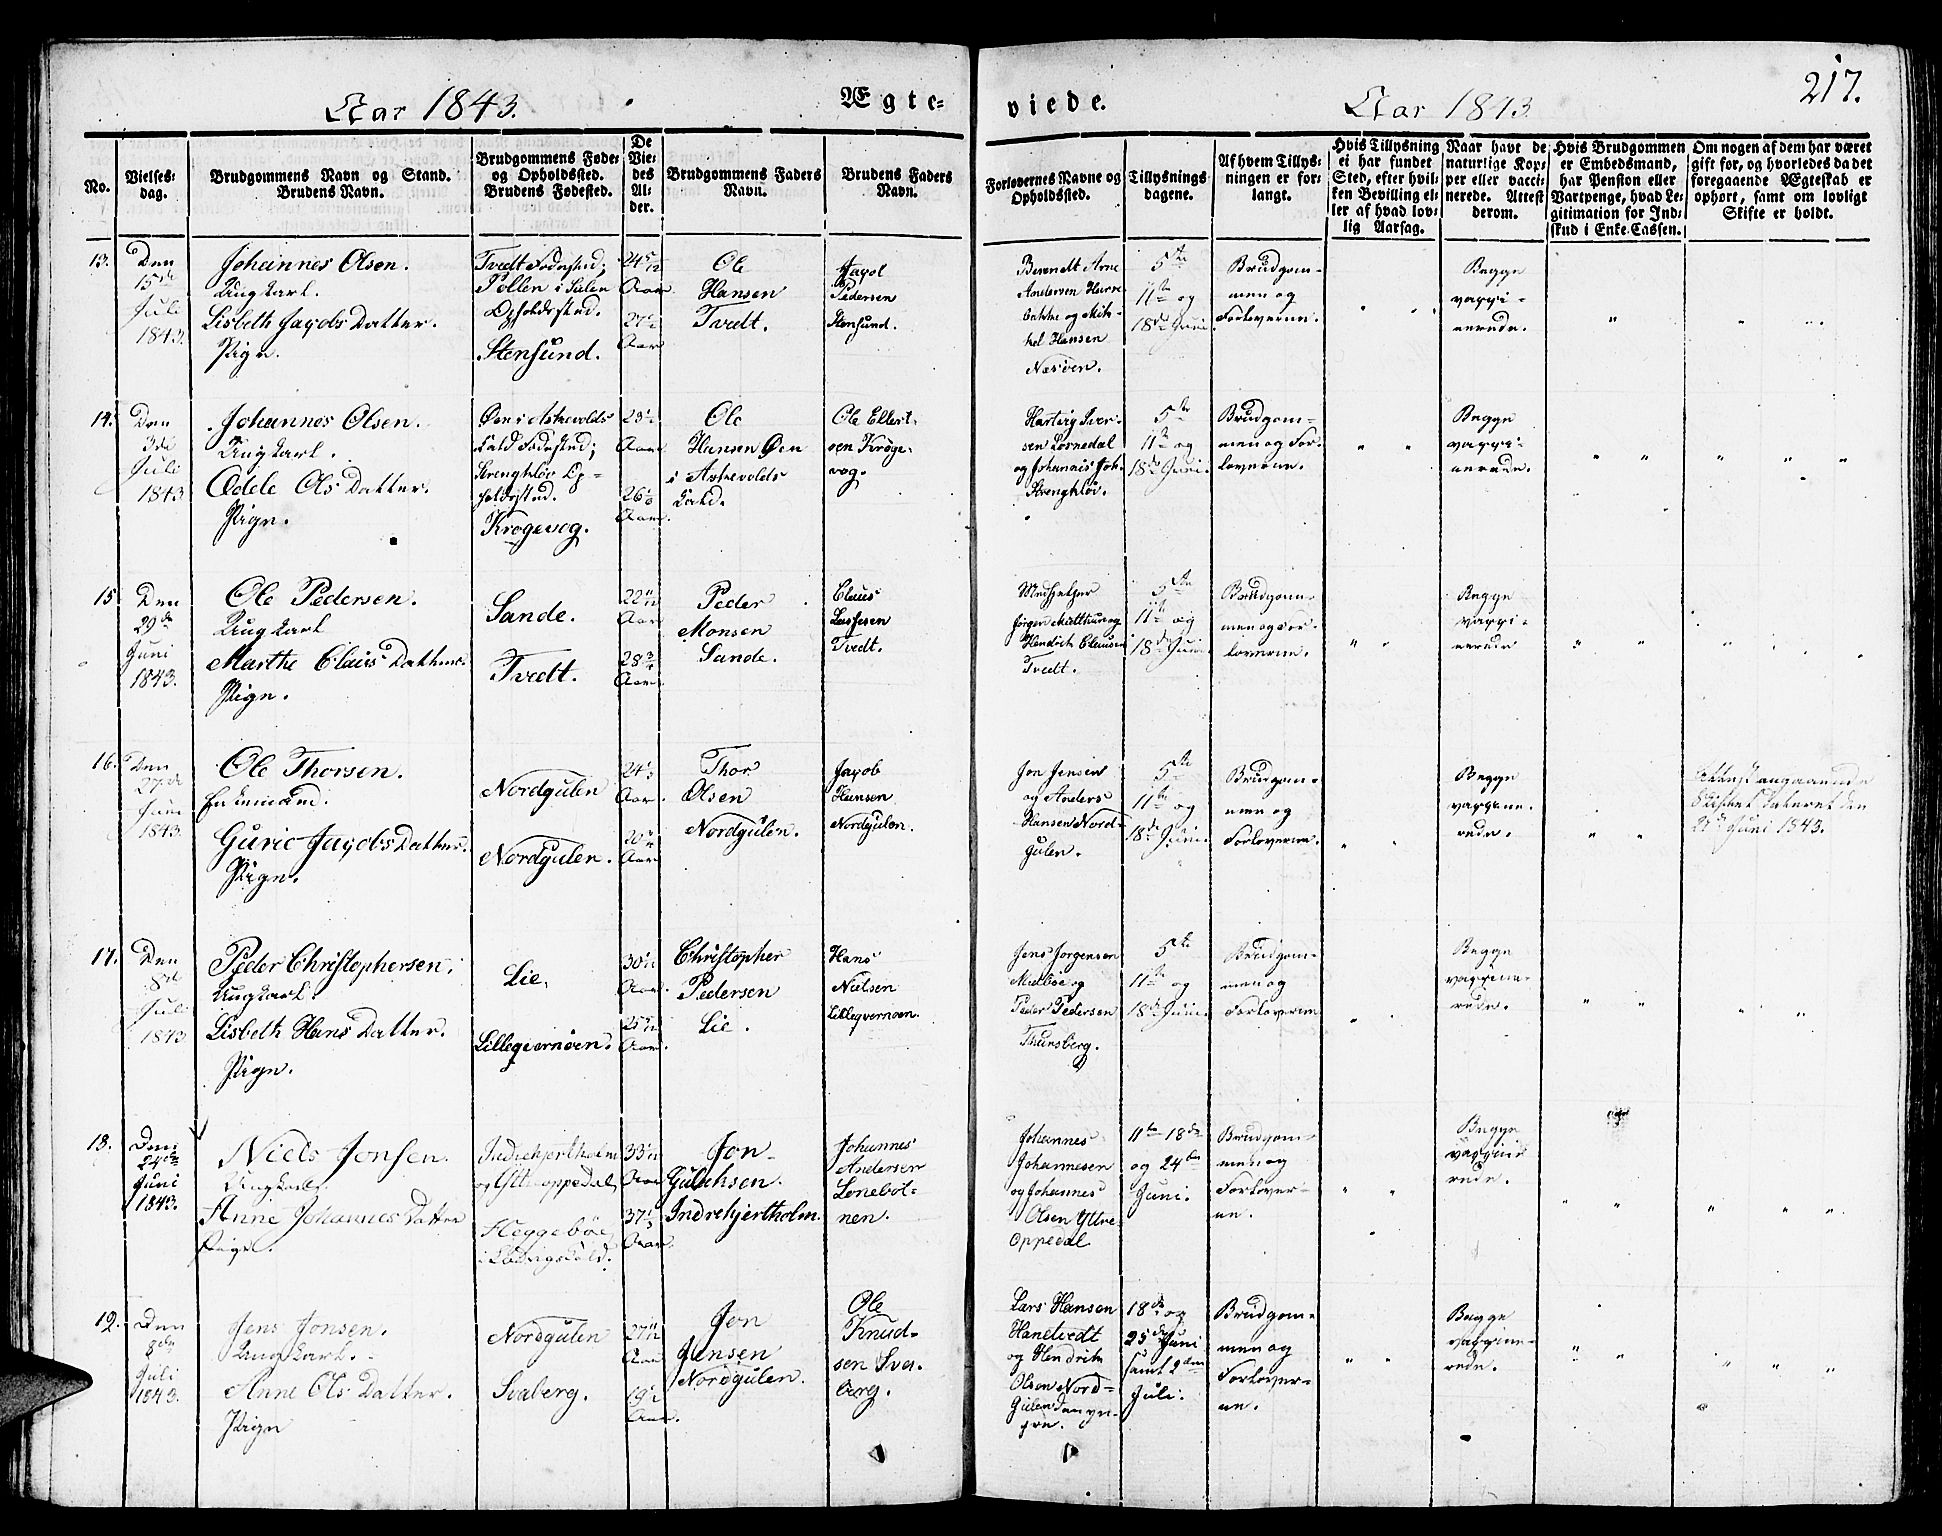 217.
Aar 1843.
Ægte-
viede.
Aar 1843
No.
Vielses-
dag.
Brudgommens Navn og Stand.
Brudens Navn.
Brudgommens Føde-
og Opholdssted.
Brudens Fødested.
De
Vie-
des
Al-
der.
Brudgommens Faders
Navn.
Brudens Faders
Navn.
Forlovernes Navne og
Opholdssted.
Tillysnings-
dagene.
Af hvem Tillys-
ningen er for-
langt.
Hvis Tillysning
ei har fundet
Sted, efter hvil-
ken Bevilling el-
ler af hvad lov-
lig Aarsag.
Naar havt de
naturlige Kop-
per eller vacci-
nerede. Attest
derom.
Hvis Brudgommen
er Embedsmand,
har Pension eller
Vartpenge, hvad Le-
gitimation for Ind-
skud i Enke-Cassen.
Om nogen af dem har været
gift før, og hvorledes da det
foregaaende Ægteskab er
ophørt, samt om lovligt
Skifte er holdt.
13.
Den
15de
Juli
1843.
Johannes Olsen.
Ungkarl.
Lisbeth Jacobs Datter.
Pige.
Tvedt Fødested;
Pollen i Sulen
Opholdssted.
Stensund.
24 5/12
Aar
Aar
Ole
Hansen
Tvedt.
Jacob
Pedersen
Stensund.
Berendt Arne
Andersen
og Mik-
kel Hansen
Næsøen.
5te
11te og
18de Juni.
Brudgom-
men og
Forloverne.
Begge
vacci-
nerede.
14.
Den
3de
Juli
1843
Johannes Olsen.
Ungkarl.
Odele Ols Datter.
Pige.
Øen i Askevolds
Kald Fødested;
Op-
holdssted.
Krogevog.
Aar
Aar.
Ole
Hansen Øen
i Askevolds
Kald.
Ole Ellert-
sen Kroge-
vog.
Hartvig Iver-
sen
og Johannes Joh.
5te
11te og
18de Juni.
Brudgom-
men og For-
loverne.
Begge
vacci-
nerede.
15
Den
29de
Juni
1843.
Ole Pedersen.
Ungkarl
Marthe Claus Datter.
Pige.
Sande.
Tvedt.
22 11/12
Aar
28 3/4
Aar.
Peder
Monsen
Sande.
Claus
Lassesen
Tvedt.
Medhjelper
Jørgen
Hendrich Clausen
Tvedt.
5te
11te og
18de Juni.
Brudgom-
men og For-
loverne.
Begge
vacci-
nerede
16.
Den
27de
Juni
1843.
Ole Thorsen.
Enkemand.
Gurie Jacobs Datter.
Pige.
Nordgulen
Nordgulen.
Aar.
Aar
Thor
Olsen
Nordgulen.
Jacob
Hansen
Nordgulen.
Jon Jensen
og Anders
Hansen Nord-
gulen.
5te
11te og
18de Juni.
Brudgom-
men og
Forloverne.
Begge
vaccine-
rede.
Attest angaaende
Skiftet dateret den
Juni 1843.
17.
Den
8de
Juli
1843
Peder Christophersen.
Ungkarl.
Lisbeth Hans Datter.
Pige.
Lie.
Lillegvernøen.
Aar.
Aar.
Christopher
Pedersen
Lie.
Hans
Nielsen
Lillegvernoen.
Jens Jørgensen
Midbøe og
Peder Pedersen
Thunsberg.
5te
11te og
18de Juni.
Brudgom-
men og
Forloverne
Begge
vaccine-
rede.
18.
Den
24de
Juni
1843.
Niels Jonsen.
Ungkarl.
Anne Johannes Datter
Pige.
Indrehjertholm
og Ytreoppedal
Heggebøe
i Ladvigs Kald.
Aar
Aar.
Jon
Gulaksen.
Indrehjertholm.
Johannes
Andersen
Lonebot-
nen.
Johannes
Johannesen
og Johannes
Olsen Yttre
Oppedal
11te 18de
og 24de
Juni.
Brudgom-
men og
Forlover-
ne.
Begge
vaccine-
rede.
19.
Den
8de
Juli
1843.
Jens Jonsen.
Ungkarl.
Anne Ols Datter.
Pige
Nordgulen
Svaberg.
27 11/12
Aar
19 1/2
Aar.
Jon
Jensen
Nordgulen.
Ole
Knud-
sen Sva-
berg.
Lars Hansen
Hanetvedt
og Hendrik
Olsen Nord-
Gulen den yn-
gre.
18de og
25de Juni
samt 2den
Juli.
Brudgom-
men og
Forlover-
ne.
Begge
vaccine-
rede.